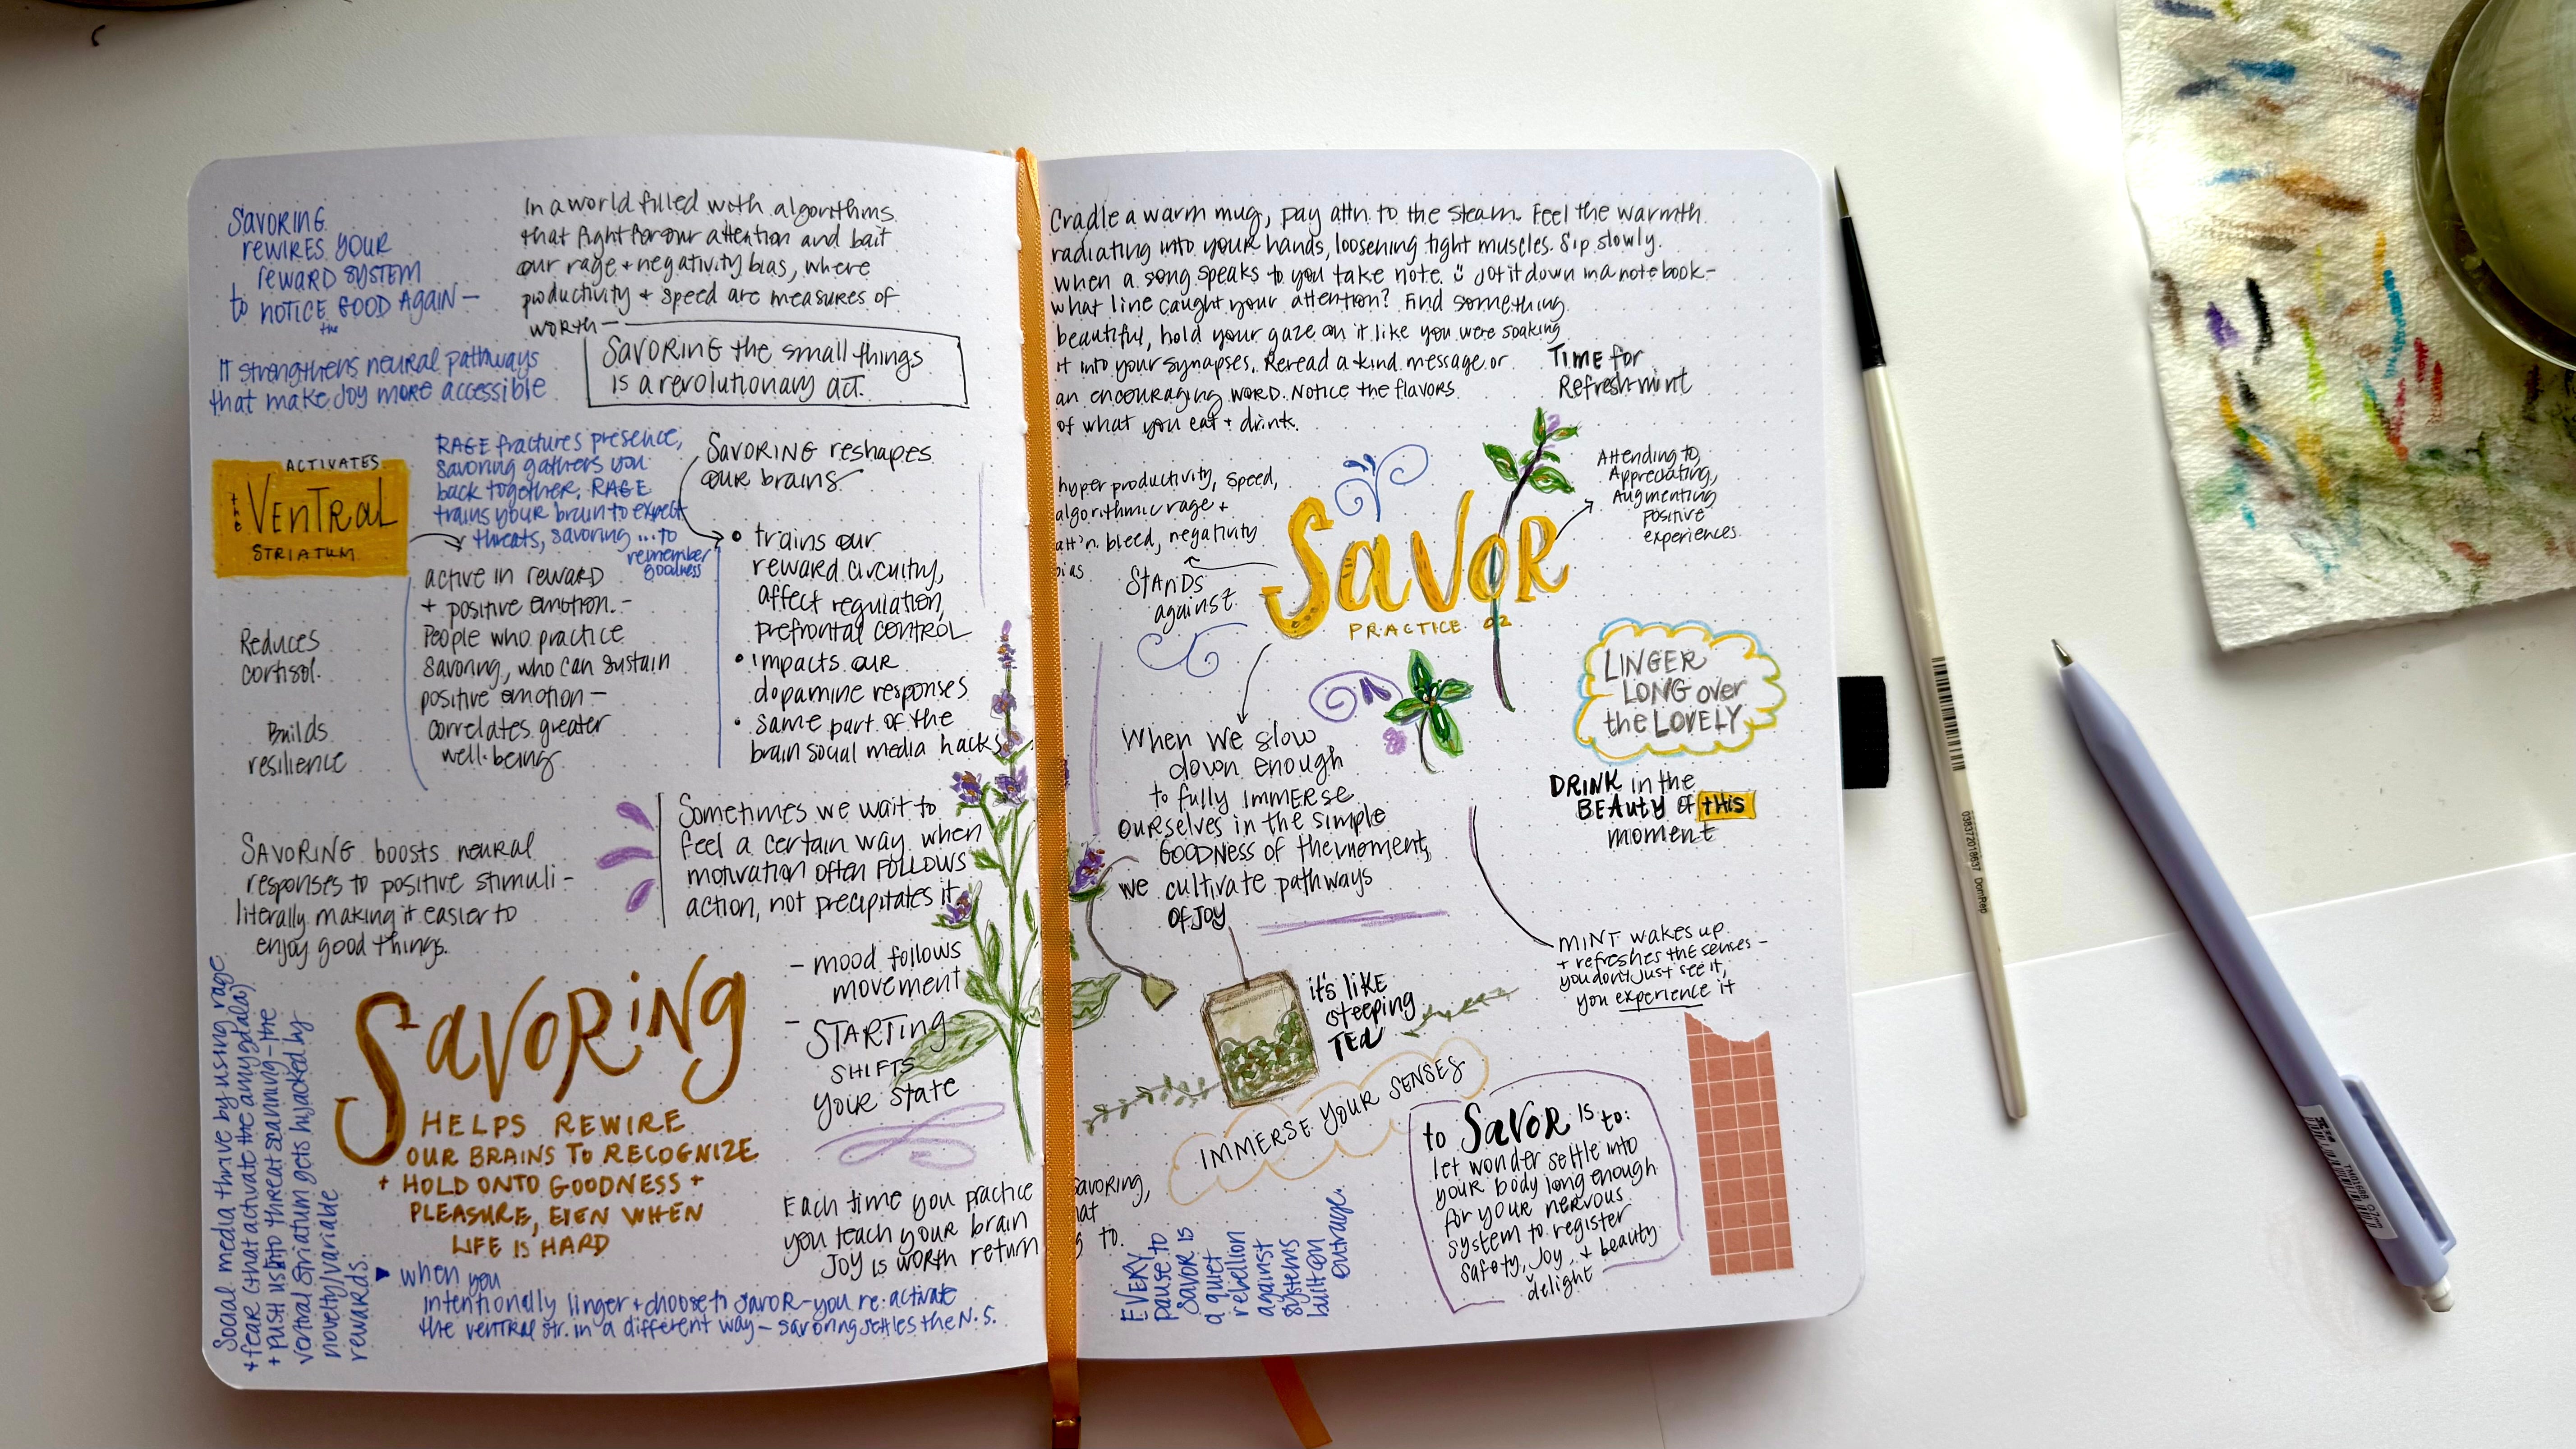 SAVORING
REWIRES YOUR
REWARD SYSTEM
to NOTICE GOOD AGAIN —
the
It strengthens neural pathways
that make Joy more accessible
In a world filled with algorithms
that fight for our attention and bait
our rage + negativity bias, where
productivity + speed are measures of
worth —
SAVORING the small things
is a revolutionary act.
ACTIVATES
the
VENTRAL
STRIATUM
RAGE fractures presence,
savoring gathers you
back together. RAGE
trains your brain to expect
threats, savoring ... to
remember
goodness
active in reward
+ positive emotion. -
People who practice
savoring, who can sustain
positive emotion —
correlates greater
well-being
Reduces
cortisol.
Builds
resilience
SAVORING reshapes
our brains
• trains our
reward circuitry,
affect regulation,
prefrontal control
• impacts our
dopamine responses
• same part of the
brain social media hacks
SAVORING boosts neural
responses to positive stimuli -
literally making it easier to
enjoy good things.
Sometimes we wait to
feel a certain way when
motivation often FOLLOWS
action, not precipitates it
- mood follows
movement
- STARTING
SHIFTS
your state
SAVORING
HELPS REWIRE
OUR BRAINS TO RECOGNIZE
+ HOLD ONTO GOODNESS +
PLEASURE, EVEN WHEN
LIFE IS HARD
Each time you practice
you teach your brain
JOY is worth return
Social media thrive by using rage
+ fear (that activate the amygdala)
+ push us into threat scanning - the
ventral striatum gets hijacked by
novelty/variable
rewards.
when you
intentionally linger + choose to savor - you re-activate
the ventral str. in a different way — savoring settles the N.S.
Cradle a warm mug, pay attn to the steam. Feel the warmth
radiating into your hands, loosening tight muscles. Sip slowly.
When a song speaks to you take note. Jot it down in a notebook -
what line caught your attention? Find something
beautiful, hold your gaze on it like you were soaking
it into your synapses. Reread a kind message or
an encouraging word. Notice the flavors
of what you eat + drink.
TIME for
Refresh-mint
hyper productivity, speed,
algorithmic rage +
att'n. bleed, negativity
bias
Stands
against
SAVOR
PRACTICE 02
Attending to,
Appreciating,
Augmenting
positive
experiences.
LINGER
LONG over
the LOVELY
DRINK in the
BEAUTY of this
moment
When we slow
down enough
to fully IMMERSE
ourselves in the simple
GOODNESS of the moment,
we cultivate pathways
OF JOY
MINT wakes up
+ refreshes the senses -
you don't just see it,
you experience it
it's like
steeping
TEA
IMMERSE YOUR SENSES
savoring,
to.
EVERY
pause to
savor is
a quiet
rebellion
against
systems
built on
outrage.
to SAVOR is to:
let wonder settle into
your body long enough
for your nervous
system to register
safety, joy, + beauty
delight